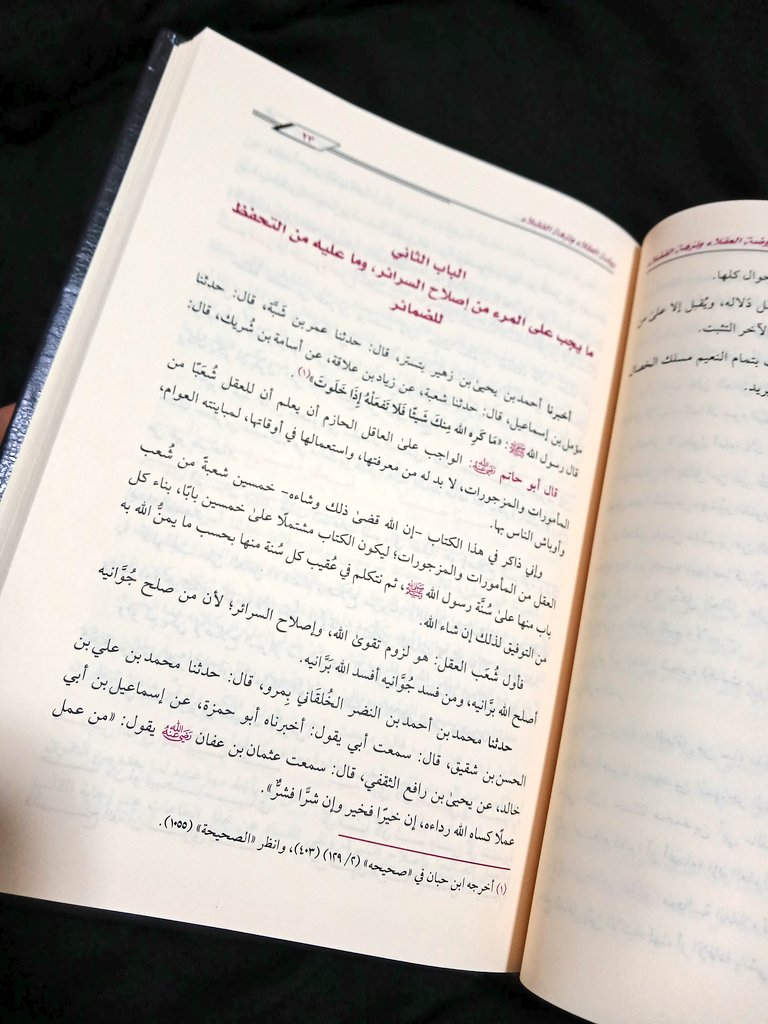 ٢٣
روضة العقلاء ونزهة الفضلاء
الباب الثاني
ما يجب على المرء من إصلاح السرائر، وما عليه من التحفظ
للضمائر
أخبرنا أحمد بن يحيىٰ بن زهير بتستر، قال: حدثنا عمر بن شَبَّة، قال: حدثنا
مؤمل بن إسماعيل، قال: حدثنا شعبة، عن زياد بن علاقة، عن أسامة بن شُريك، قال:
قال رسول الله ﷺ: «مَا كَرِه الله مِنكَ شَيئًا فَلَا تَفعَلْهُ إِذَا خَلَوتَ»(١).
قال أبو حاتم رَضِيَ اللهُ عَنْهُ: الواجب علىٰ العاقل الحازم أن يعلم أن للعقل شُعَبًا من
المأمورات والمزجورات، لا بد له من معرفتها، واستعمالها في أوقاتها، لمباينته العوام،
وأوباش الناس بها.
وإني ذاكر في هذا الكتاب -إن الله قضىٰ ذلك وشاءه- خمسين شعبةً من شُعب
العقل من المأمورات والمزجورات؛ ليكون الكتاب مشتملًا علىٰ خمسين بابًا، بناء كل
باب منها علىٰ سُنَّة رسول الله ﷺ، ثم نتكلم في عُقيب كل سُنة منها بحسب ما يمنُّ الله به
من التوفيق لذلك إن شاء الله.
فأول شُعَب العقل: هو لزوم تقوىٰ الله، وإصلاح السرائر؛ لأن من صلح جُوَّانيه
أصلح الله برَّانيه، ومن فسد جُوَّانيه أفسد الله بَرَّانيه.
حدثنا محمد بن أحمد بن النضر الخُلقَاني بِمرو، قال: حدثنا محمد بن علي بن
الحسن بن شقيق، قال: سمعت أبي يقول: أخبرناه أبو حمزة، عن إسماعيل بن أبي
خالد، عن يحيىٰ بن رافع الثقفي، قال: سمعت عثمان بن عفان رَضِيَ اللهُ عَنْهُ يقول: «من عمل
عملًا كساه الله رداءه، إن خيرًا فخير وإن شرًّا فشرٌّ».
(١) أخرجه ابن حبان في «صحيحه» (٢/ ١٢٩) (٤٠٣)، وانظر «الصحيحة» (١٠٥٥).
روضة العقلاء ونزهة الفضلاء
حوال كلها.
دَلاله، ويُقبل إلا علىٰ من
لآخر التثبت.
بتمام النعيم مسلك الخصال
يريد.